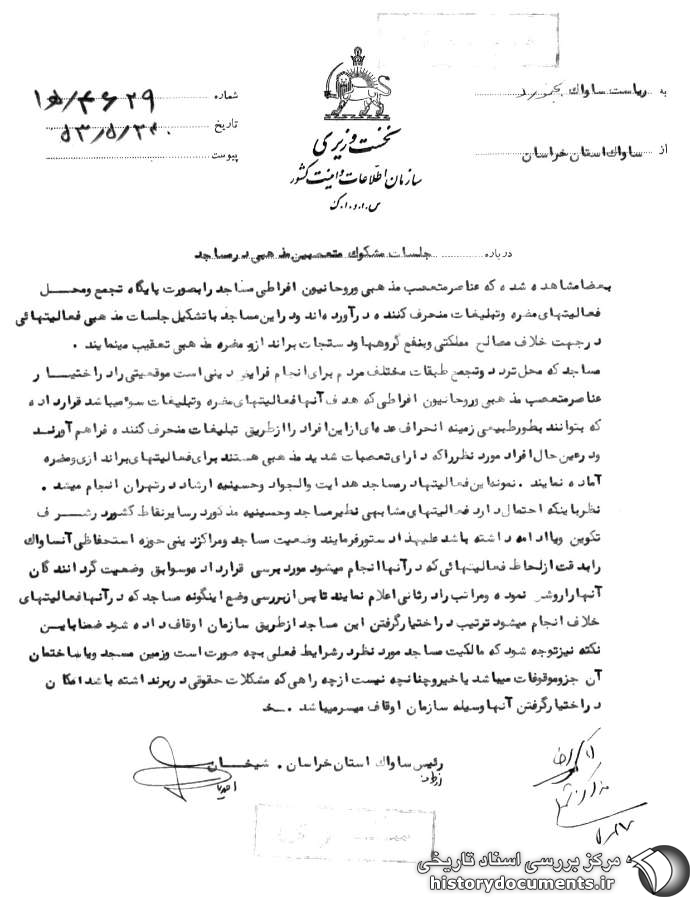 به ریاست ساواك بجنورد
از ساواك استان خراسان
نخست وزیری
سازمان اطلاعات و امنیت کشور
س.ا.و.ا.ك
شماره ۱۵/۴۶۲۹
تاریخ ۵۳/۵/۲۰
پیوست
درباره جلسات مشکوك متعصبین مذهبی در مساجد
بعضا مشاهده شده که عناصر متعصب مذهبی و روحانیون افراطی مساجد را بصورت پایگاه تجمع و محل
فعالیتهای مضره و تبلیغات منحرف کننده در آورده اند و در این مساجد با تشکیل جلسات مذهبی فعالیتهائی
در جهت خلاف مصالح مملکتی و بنفع گروهها و دستجات برانداز و مضره مذهبی تعقیب مینمایند .
مساجد که محل تردد و تجمع طبقات مختلف مردم برای انجام فرایض دینی است موقعیتی را در اختیار
عناصر متعصب مذهبی و روحانیون افراطی که هدف آنها فعالیتهای مضره و تبلیغات سوء میباشد قرار داده
که بتوانند بطور طبیعی زمینه انحراف عده ای از این افراد را از طریق تبلیغات منحرف کننده فراهم آورند
و در عین حال افراد مورد نظر را که دارای تعصبات شدید مذهبی هستند برای فعالیتهای براندازی و مضره
آماده نمایند . نمونه این فعالیتها در مساجد هدایت و الجواد و حسینیه ارشاد در تهران انجام میشد .
نظر باینکه احتمال دارد فعالیتهای مشابهی نظیر مساجد و حسینیه مذکور در سایر نقاط کشور در شرف
تکوین و یا ادامه داشته باشد علیهذا دستور فرمایند وضعیت مساجد و مراکز دینی حوزه استحفاظی آنساواك
را بدقت از لحاظ فعالیتهائی که در آنها انجام میشود مورد بررسی قرار داده و سوابق وضعیت گردانندگان
آنها را روشن نموده و مراتب را در ثانی اعلام نمایند تا پس از بررسی وضع اینگونه مساجد که در آنها فعالیتهای
خلاف انجام میشود ترتیب در اختیار گرفتن این مساجد از طریق سازمان اوقاف داده شود ضمنا باین
نکته نیز توجه شود که مالکیت مساجد مورد نظر در شرایط فعلی بچه صورت است و زمین مسجد و یا ساختمان
آن جزو موقوفات میباشد یا خیر و چنانچه نیست از چه راهی که مشکلات حقوقی در بر نداشته باشد امکان
در اختیار گرفتن آنها وسیله سازمان اوقاف میسر میباشد .
رئیس ساواك استان خراسان . شیخان
مرکز بررسی اسناد تاریخی
historydocuments.ir